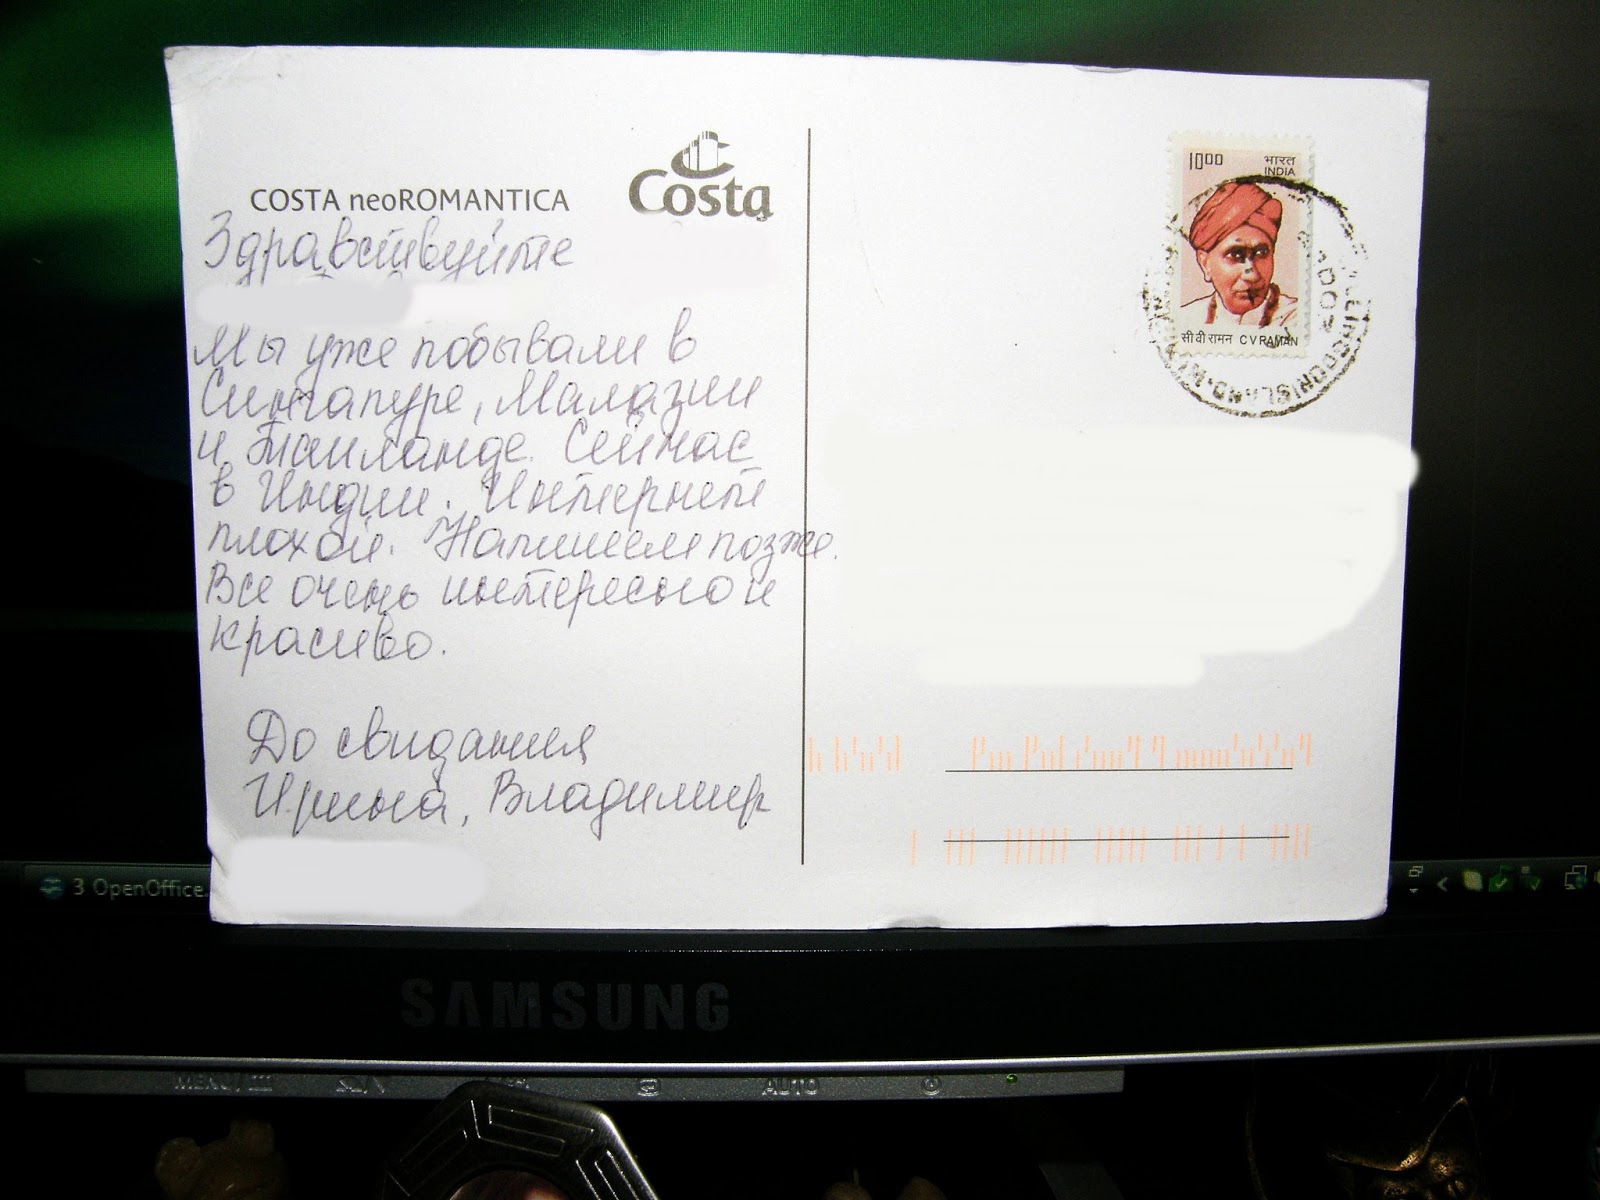 COSTA neoROMANTICA
Costa
Здравствуйте
Мы уже побывали в
Сингапуре, Малазии
и Таиланде. Сейчас
в Индии. Интернет
плохой. Напишем позже.
Все очень интересно и
красиво.
До свидания
Ирина, Владимир
1000
भारत
INDIA
सी वी रामन C V RAMAN
3 OpenOffice.
SAMSUNG
MENU
AUTO